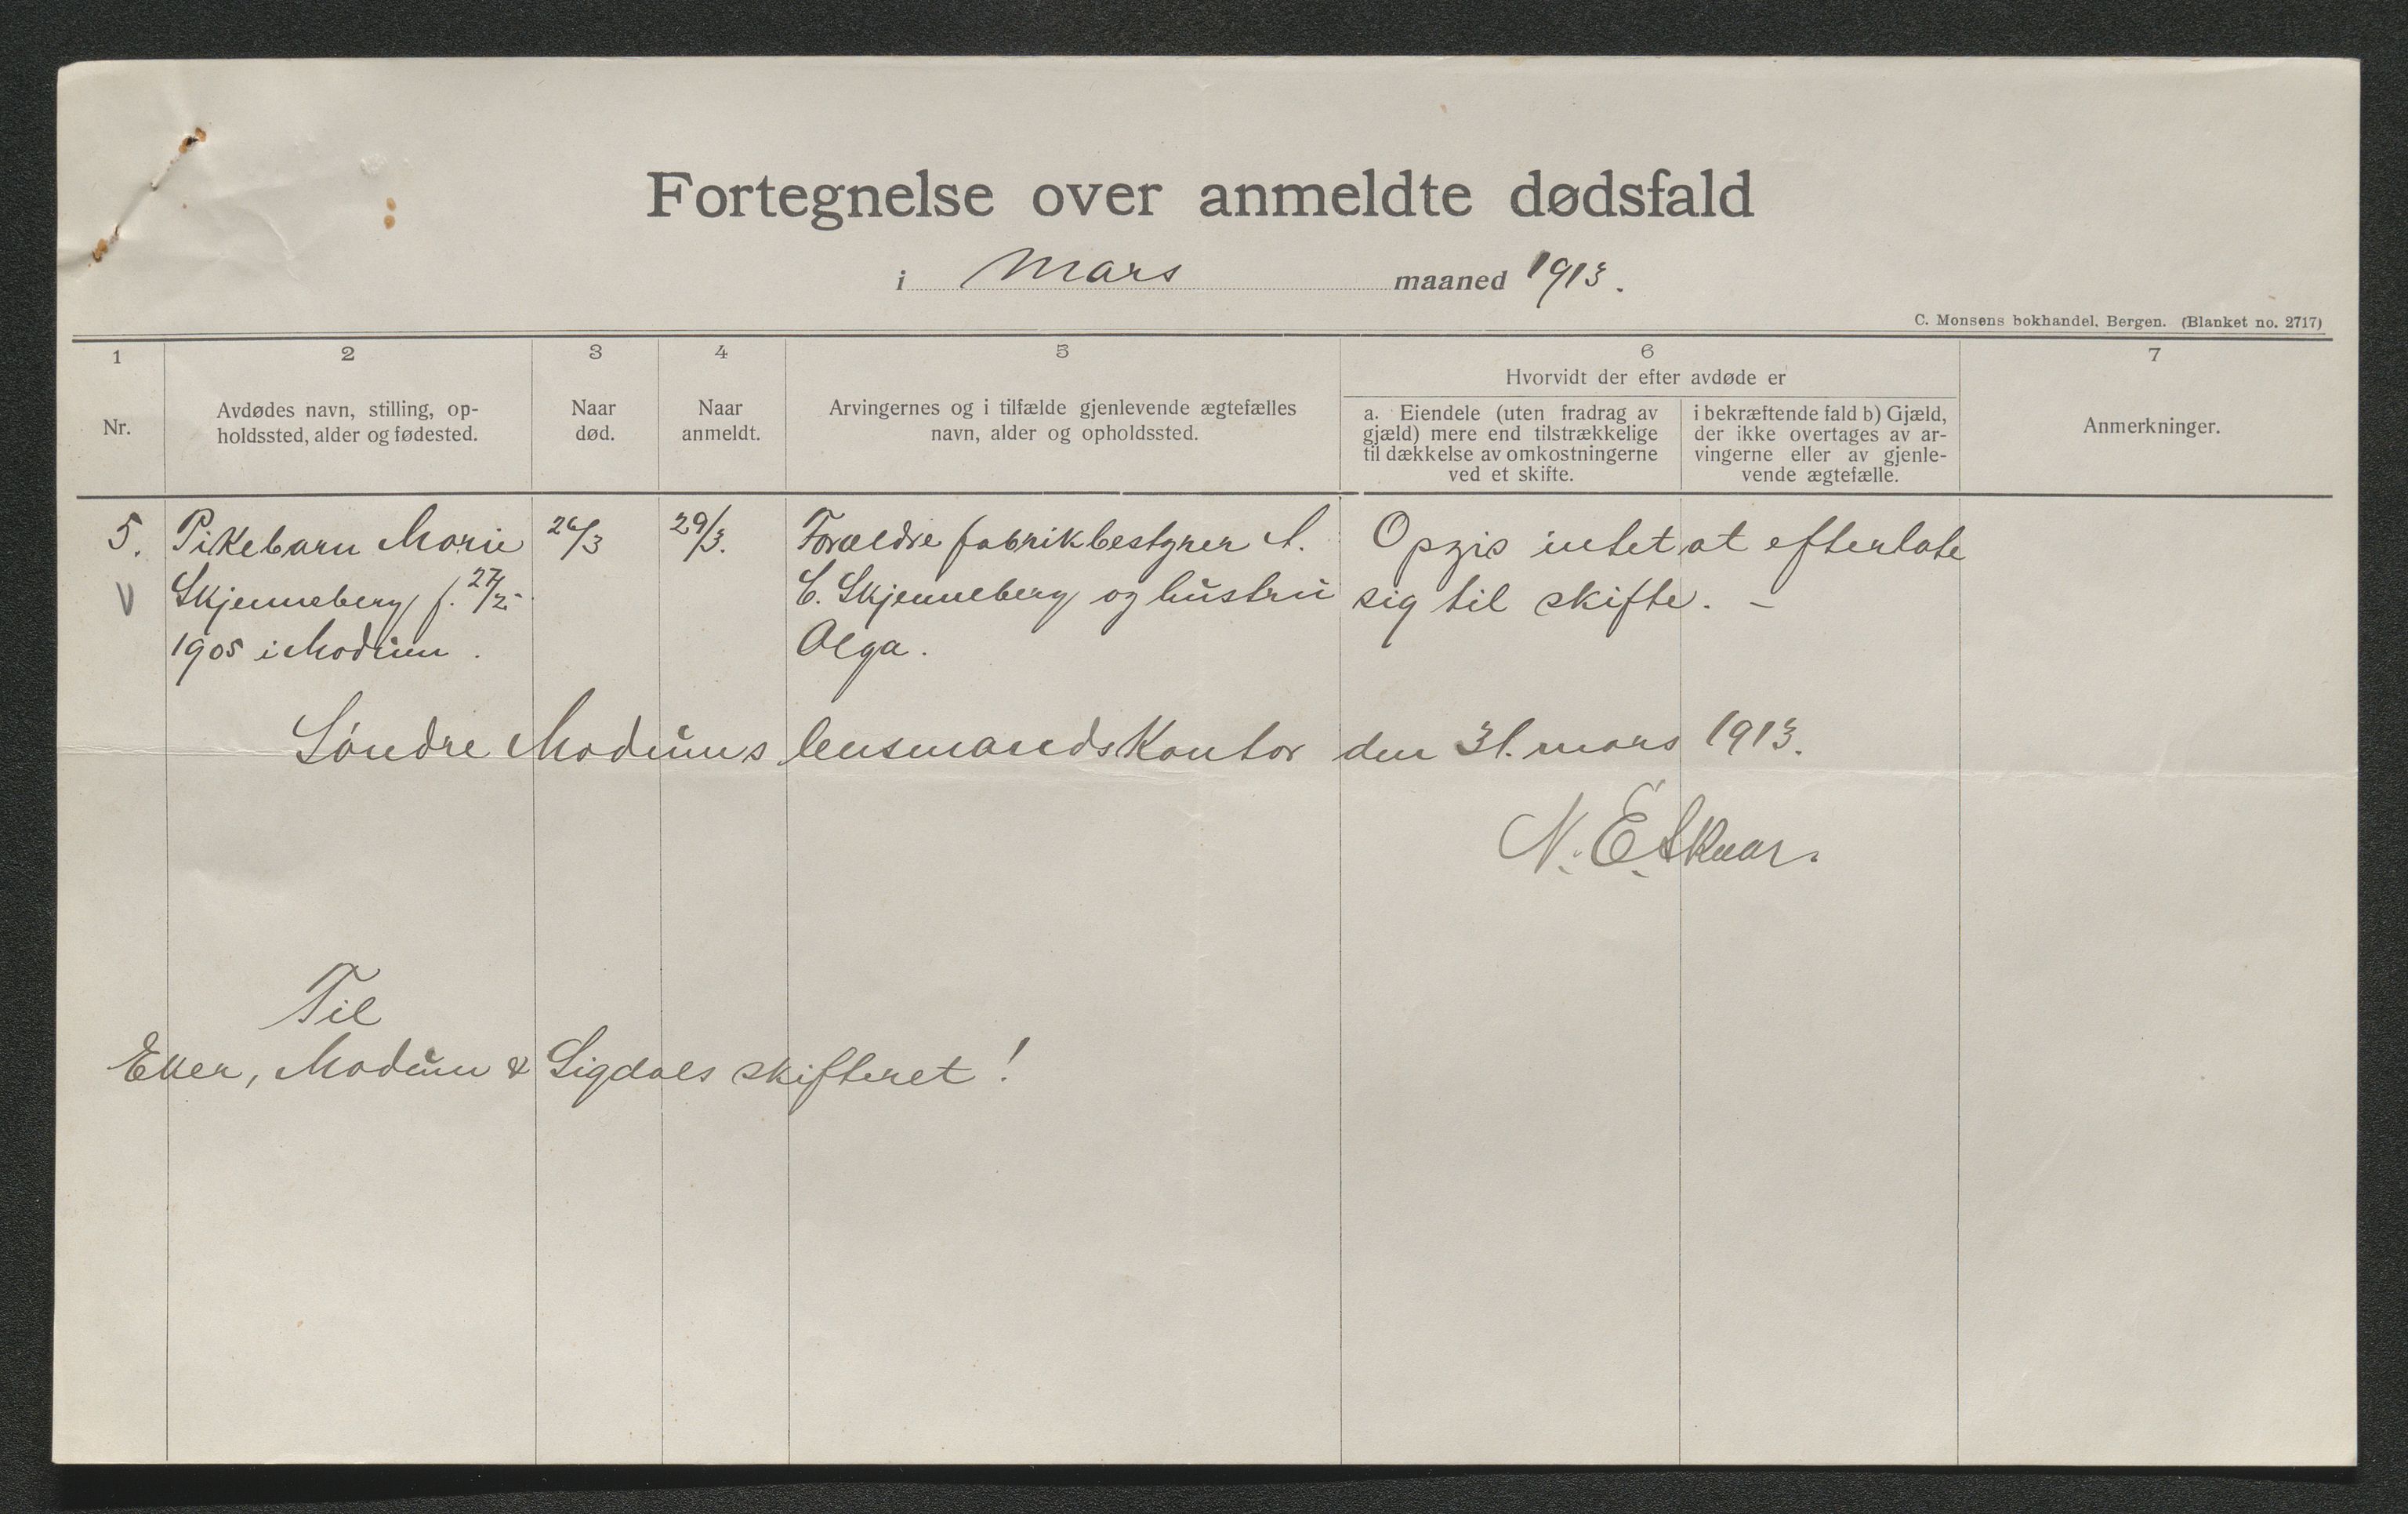 Fortegnelse over anmeldte dødsfald
i Mars maaned 1913.
C. Monsens bokhandel, Bergen. (Blanket no. 2717)
1 2 3 4 5 6 7
Nr.
Avdødes navn, stilling, op-
holdssted, alder og fødested.
Naar
død.
Naar
anmeldt.
Arvingernes og i tilfælde gjenlevende ægtefælles
navn, alder og opholdssted.
Hvorvidt der efter avdøde er
a. Eiendele (uten fradrag av
gjæld) mere end tilstrækkelige
til dækkelse av omkostningerne
ved et skifte.
i bekræftende fald b) Gjæld,
der ikke overtages av ar-
vingerne eller av gjenle-
vende ægtefælle.
Anmerkninger.
5.
V
Pikebarn Marie
Skjenneberg f. 27/2-
1905 i Modum.
26/3
29/3.
Forældre fabrikbestyrer A.
C. Skjenneberg og hustru
Olga.
Opgis intet at efterlate
sig til skifte. -
Søndre Modums lensmandskontor den 31. mars 1913.
N. E.
Til
Eker, Modum & Sigdals skifteret!